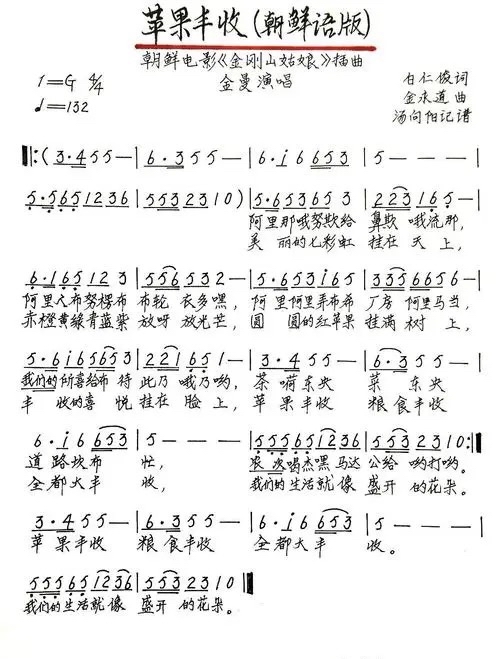 苹果丰收(朝鲜语版)
朝鲜电影《金刚山姑娘》插曲
金曼演唱
1=G 4/4
♩=132
白仁俊词
金永道曲
汤向阳记谱
‖:(3·455—|6·355—|6·i6653|5———|
5·5651236|5532310)|5·65365 3|2 23165|
阿里那哦努欺给 鼻欺 哦流那,
美 丽的七彩虹 挂在 天 上,
6·165123|556532—|5·365123|3355665 6—|
阿里尺布努楞布 布轮 衣多嘿, 阿里阿里弄布希 厂房 阿里马当,
赤橙黄绿青蓝紫 放呀 放光芒, 圆 圆的红苹果 挂满 树 上,
5·6165653|221651—|3·455—|6·355—|
我们的所喜给布 待 此乃 哦乃哟, 茶 嗬东央 菜 东央
丰 收的喜 悦 挂在 脸 上, 苹 果丰收 粮 食丰收
6·i6653|5———|5556512 36|5532310:‖
道 路坎布 忙, 浓次喝杰嘿马达 公给 哟打哟。
全 都大丰 收, 我们的生活就像 盛开 的花朵。
3·455—|6·355—|6·i6653|5———|
苹 果丰收 粮 食丰收 全 都大丰 收。
5556512 36|5532310‖
我们的生活就像 盛开 的花朵。